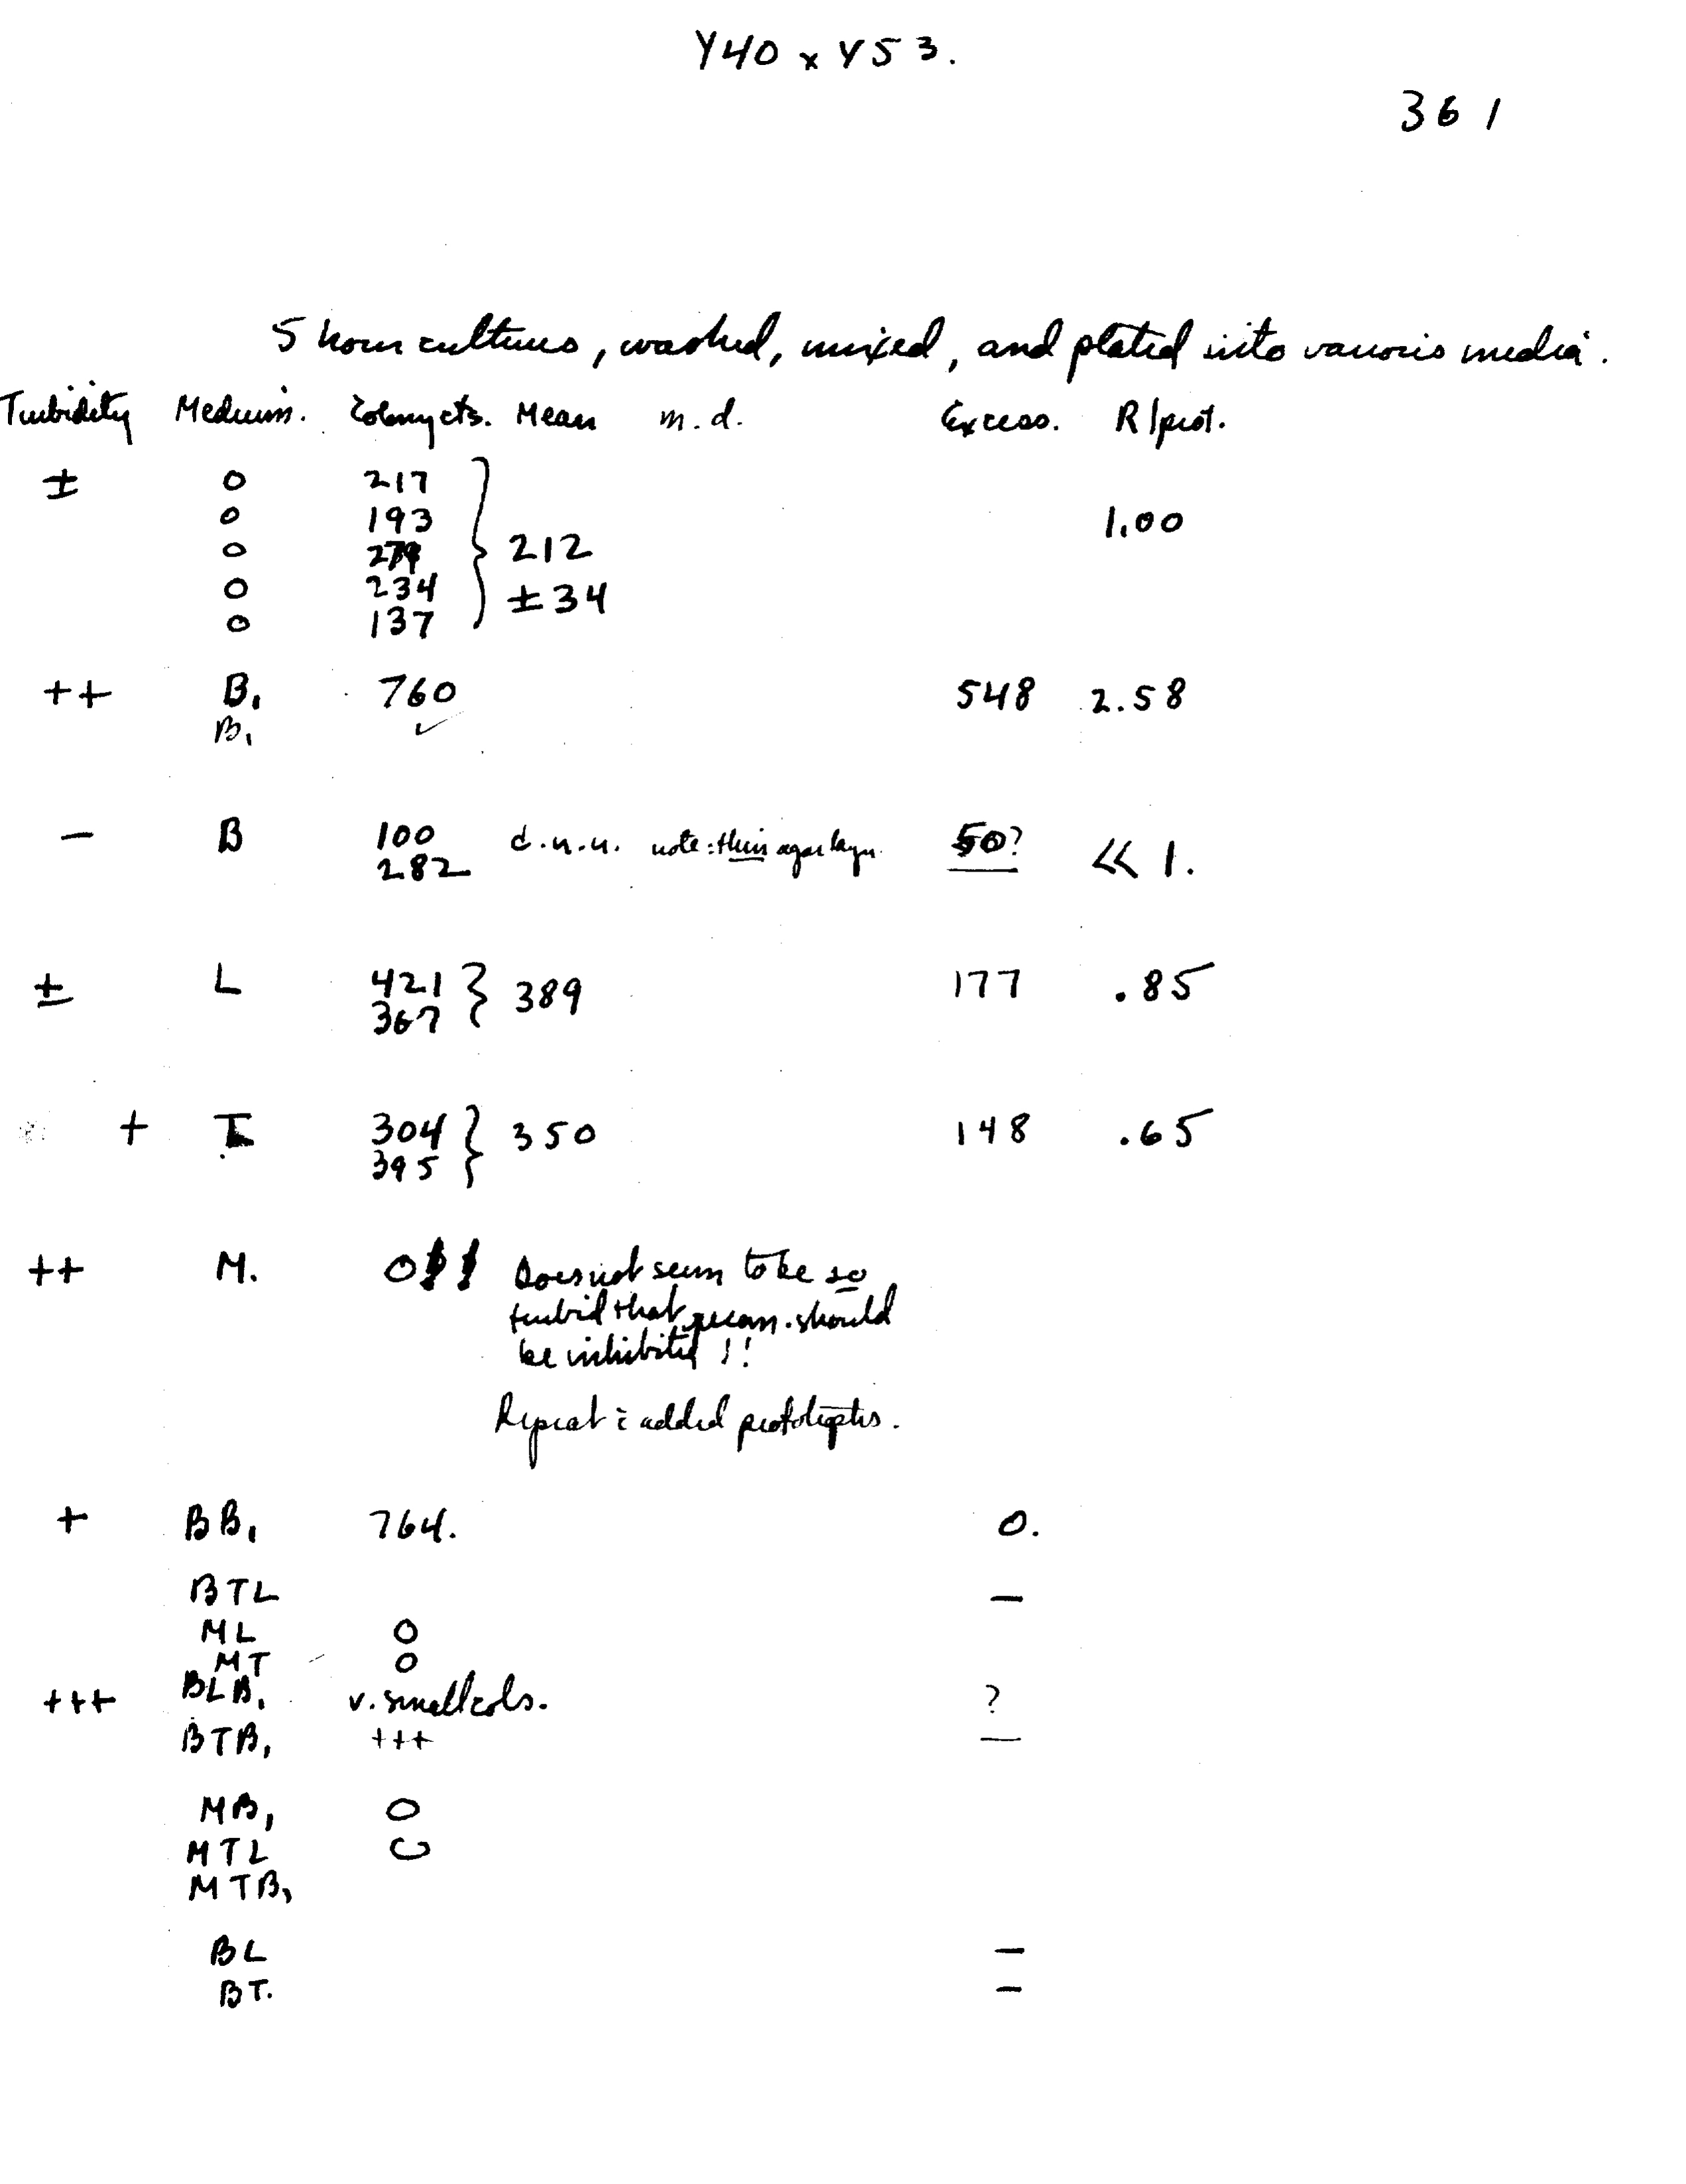 Y40 x Y53.
361
5 hour cultures, washed, mixed, and plated into various media.
Turbidity Medium. Colony cts. Mean m.d. Excess. R/prot.
± 0 217
0 193 1.00
0 279 212
0 234 ±34
0 137
++ B₁ 760 548 2.58
B₁ ✓
- B 100 d.n.u. note: thin agar layer. 50? << 1.
282
± L 421 } 389 177 .85
367
+ T 304 } 350 148 .65
395
++ M. 0!! Does not seem to be so
turbid that recom. should
be inhibited !!
Repeat c̄ added prototrophs.
+ BB₁ 764. 0.
BTL -
ML 0
MT 0
+++ BLB₁ v. small cols. ?
BTB₁ +++ -
MB₁ 0
MTL 0
MTB₁
BL -
BT. -